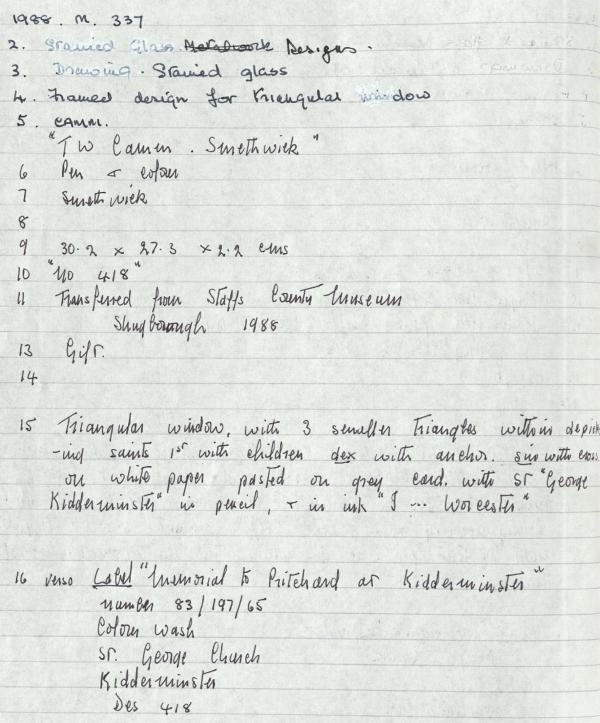 1988. M. 337
2. Stained Glass Metalwork Designs.
3. Drawing. Stained glass
4. Framed design for triangular window
5. CAMM.
"TW Camm. Smethwick"
6 Pen & colour
7 Smethwick
8
9 30.2 x 27.3 x 2.2 cms
10 "No 418"
11 Transferred from Staffs County Museum
Shugborough 1988
13 Gift.
14
15 Triangular window, with 3 smaller triangles within depict
-ing saints 1st with children dex with anchor. sin with cross
on white paper pasted on grey card. with St "George
Kidderminster" in pencil, & in ink "I ... Worcester"
16 verso Label "Memorial to Pritchard at Kidderminster"
number 83/197/65
Colour wash
St. George Church
Kidderminster
Des 418